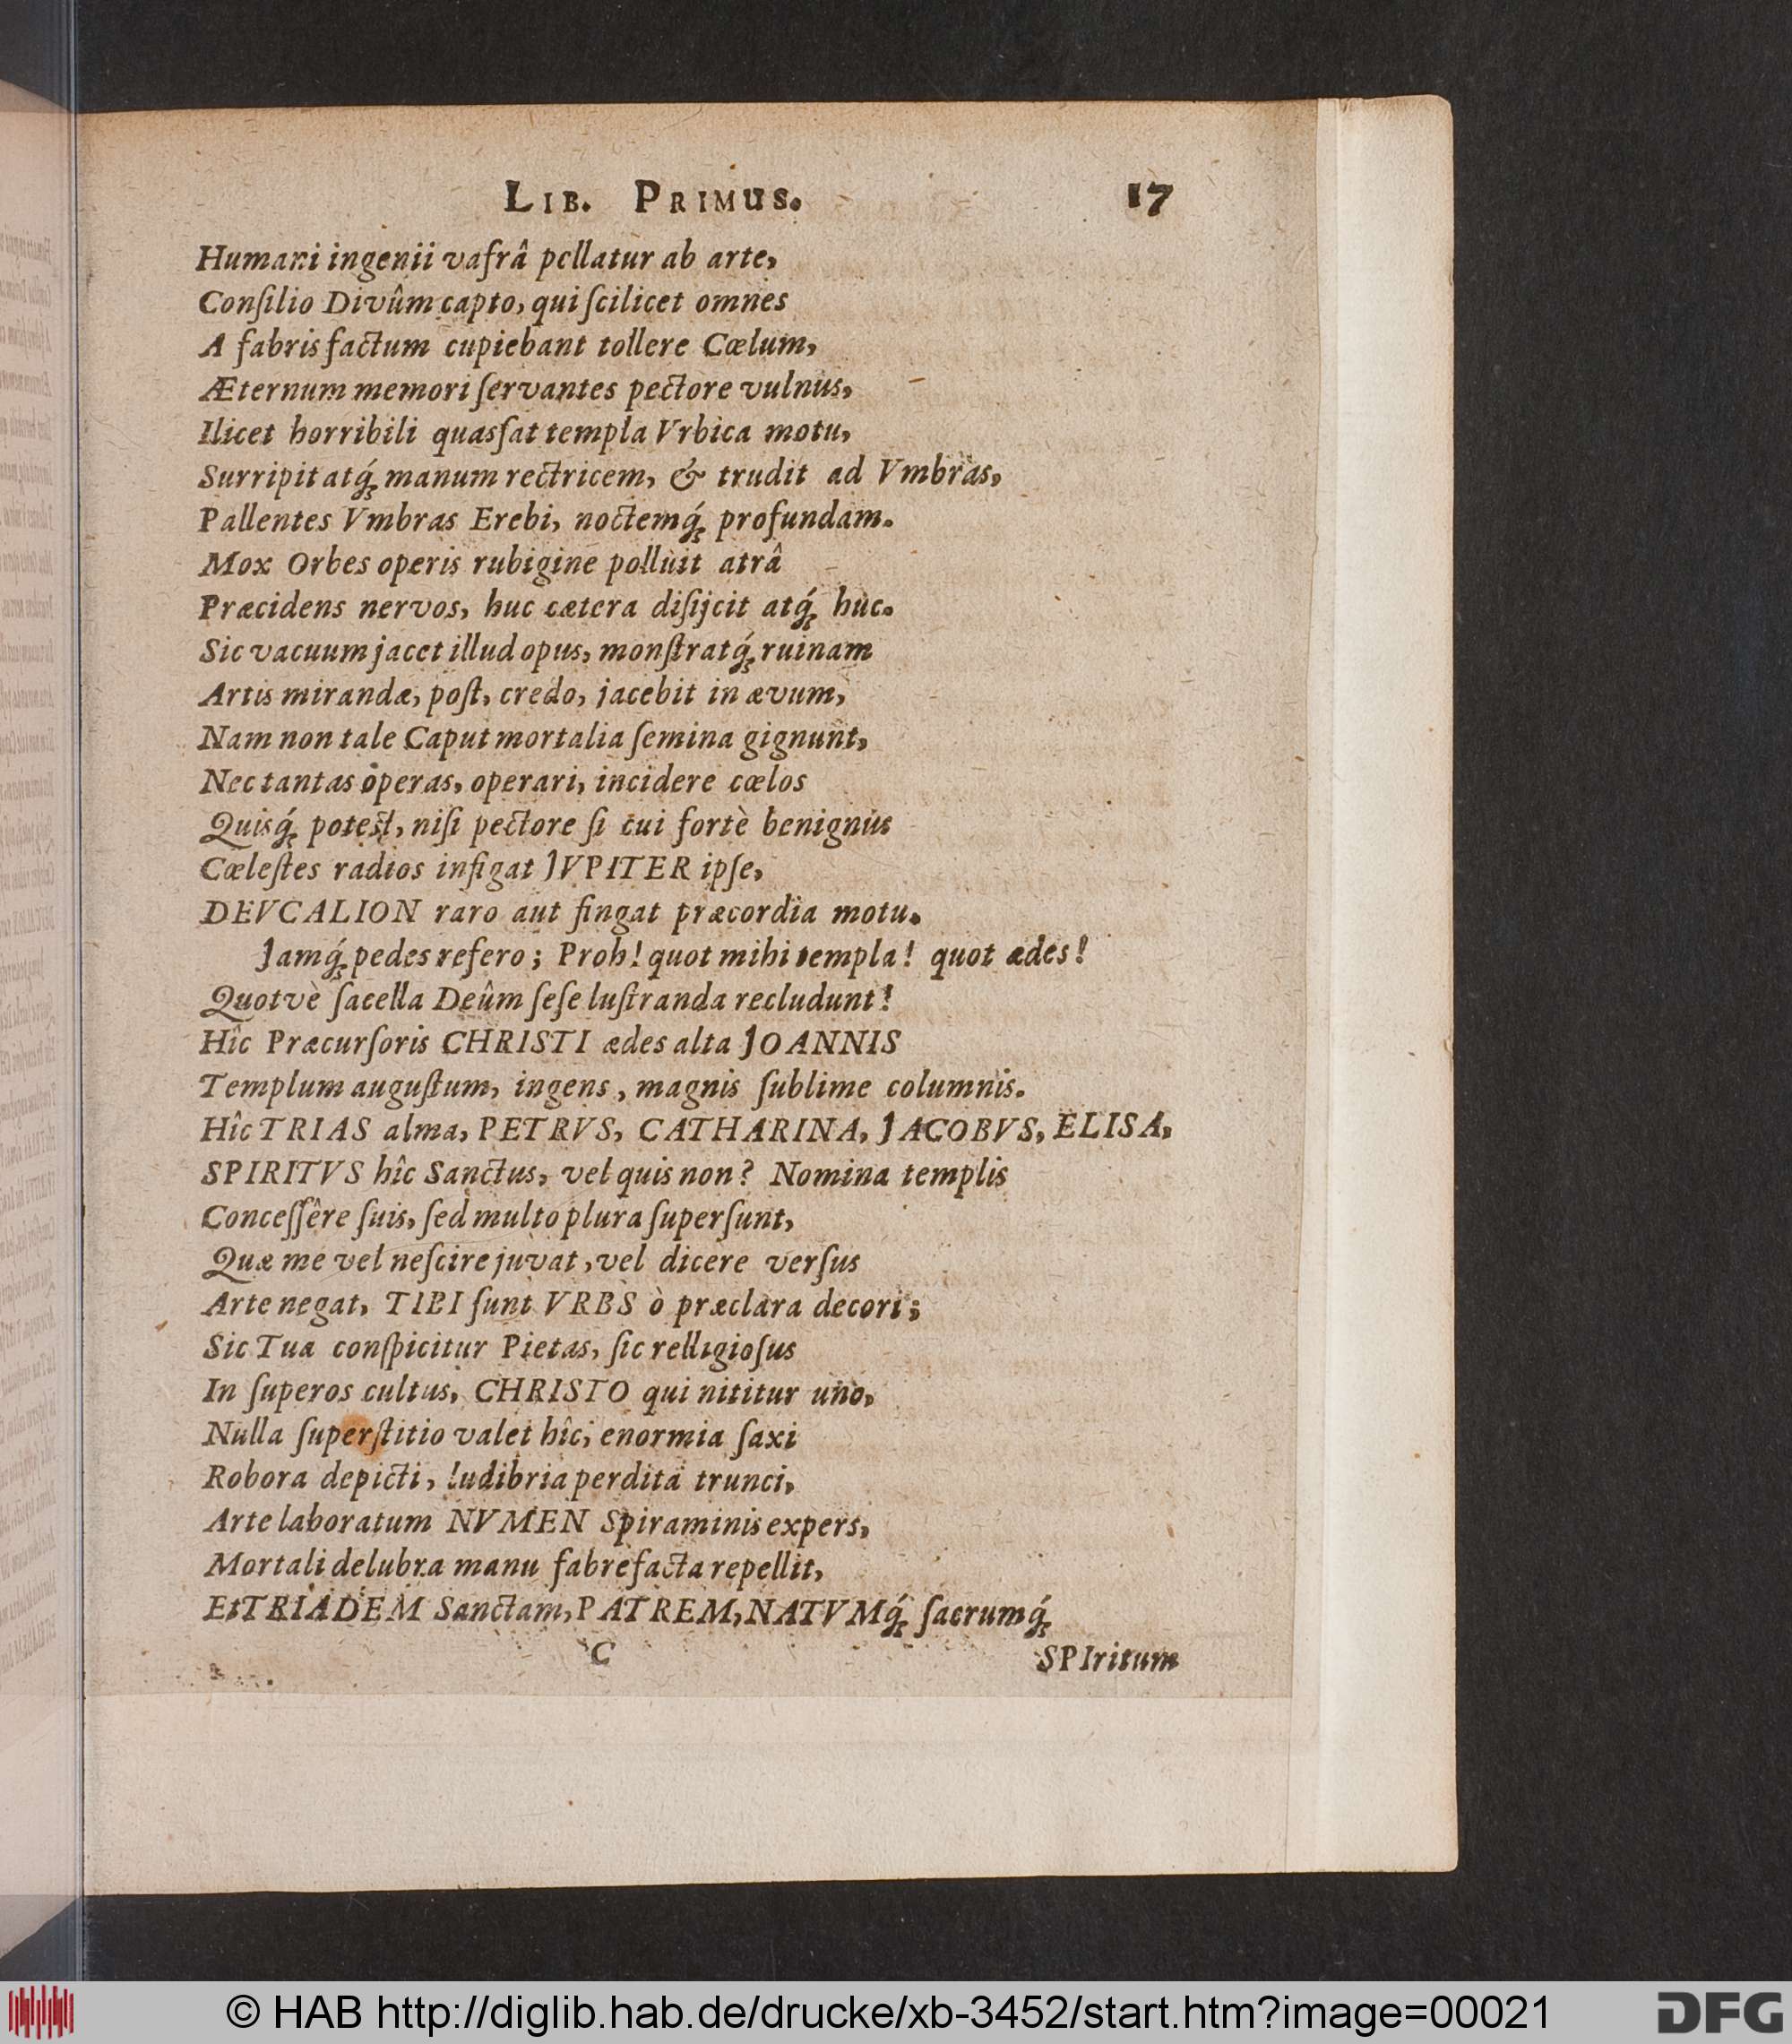 LIB. PRIMUS. 17
Humani ingenii vafrâ pellatur ab arte,
Conſilio Divûm capto, qui ſcilicet omnes
A fabris factum cupiebant tollere Cœlum,
Æternum memori ſervantes pectore vulnus,
Ilicet horribili quasſat templa Vrbica motu,
Surripit atq́; manum rectricem, & trudit ad Vmbras,
Pallentes Vmbras Erebi, noctemq́; profundam.
Mox Orbes operis rubigine polluit atrâ
Præcidens nervos, huc cætera diſijcit atq́; huc.
Sic vacuum jacet illud opus, monſtratq́; ruinam
Artis mirandæ, poſt, credo, jacebit in ævum,
Nam non tale Caput mortalia ſemina gignunt,
Nec tantas operas, operari, incidere cœlos
Quisq́; poteſt, niſi pectore ſi cui fortè benignus
Cœleſtes radios infigat JVPITER ipſe,
DEVCALION raro aut fingat præcordia motu.
Jamq́; pedes refero; Proh! quot mihi templa! quot ædes!
Quotvè ſacella Deûm ſeſe luſtranda recludunt!
Hîc Præcurſoris CHRISTI ædes alta JOANNIS
Templum auguſtum, ingens, magnis ſublime columnis.
Hîc TRIAS alma, PETRVS, CATHARINA, JACOBVS, ELISA,
SPIRITVS hîc Sanctus, vel quis non? Nomina templis
Conceſſêre ſuis, ſed multo plura ſuperſunt,
Quæ me vel neſcire juvat, vel dicere verſus
Arte negat, TIBI ſunt VRBS ò præclara decori;
Sic Tua conſpicitur Pietas, ſic relligioſus
In ſuperos cultus, CHRISTO qui nititur uno,
Nulla ſuperſtitio valet hîc, enormia ſaxi
Robora depicti, ludibria perdita trunci,
Arte laboratum NVMEN Spiraminis expers,
Mortali delubra manu fabrefacta repellit,
Et TRIADEM Sanctam, PATREM, NATVMq́; ſacrumq́;
C SPIritum
© HAB http://diglib.hab.de/drucke/xb-3452/start.htm?image=00021
DFG